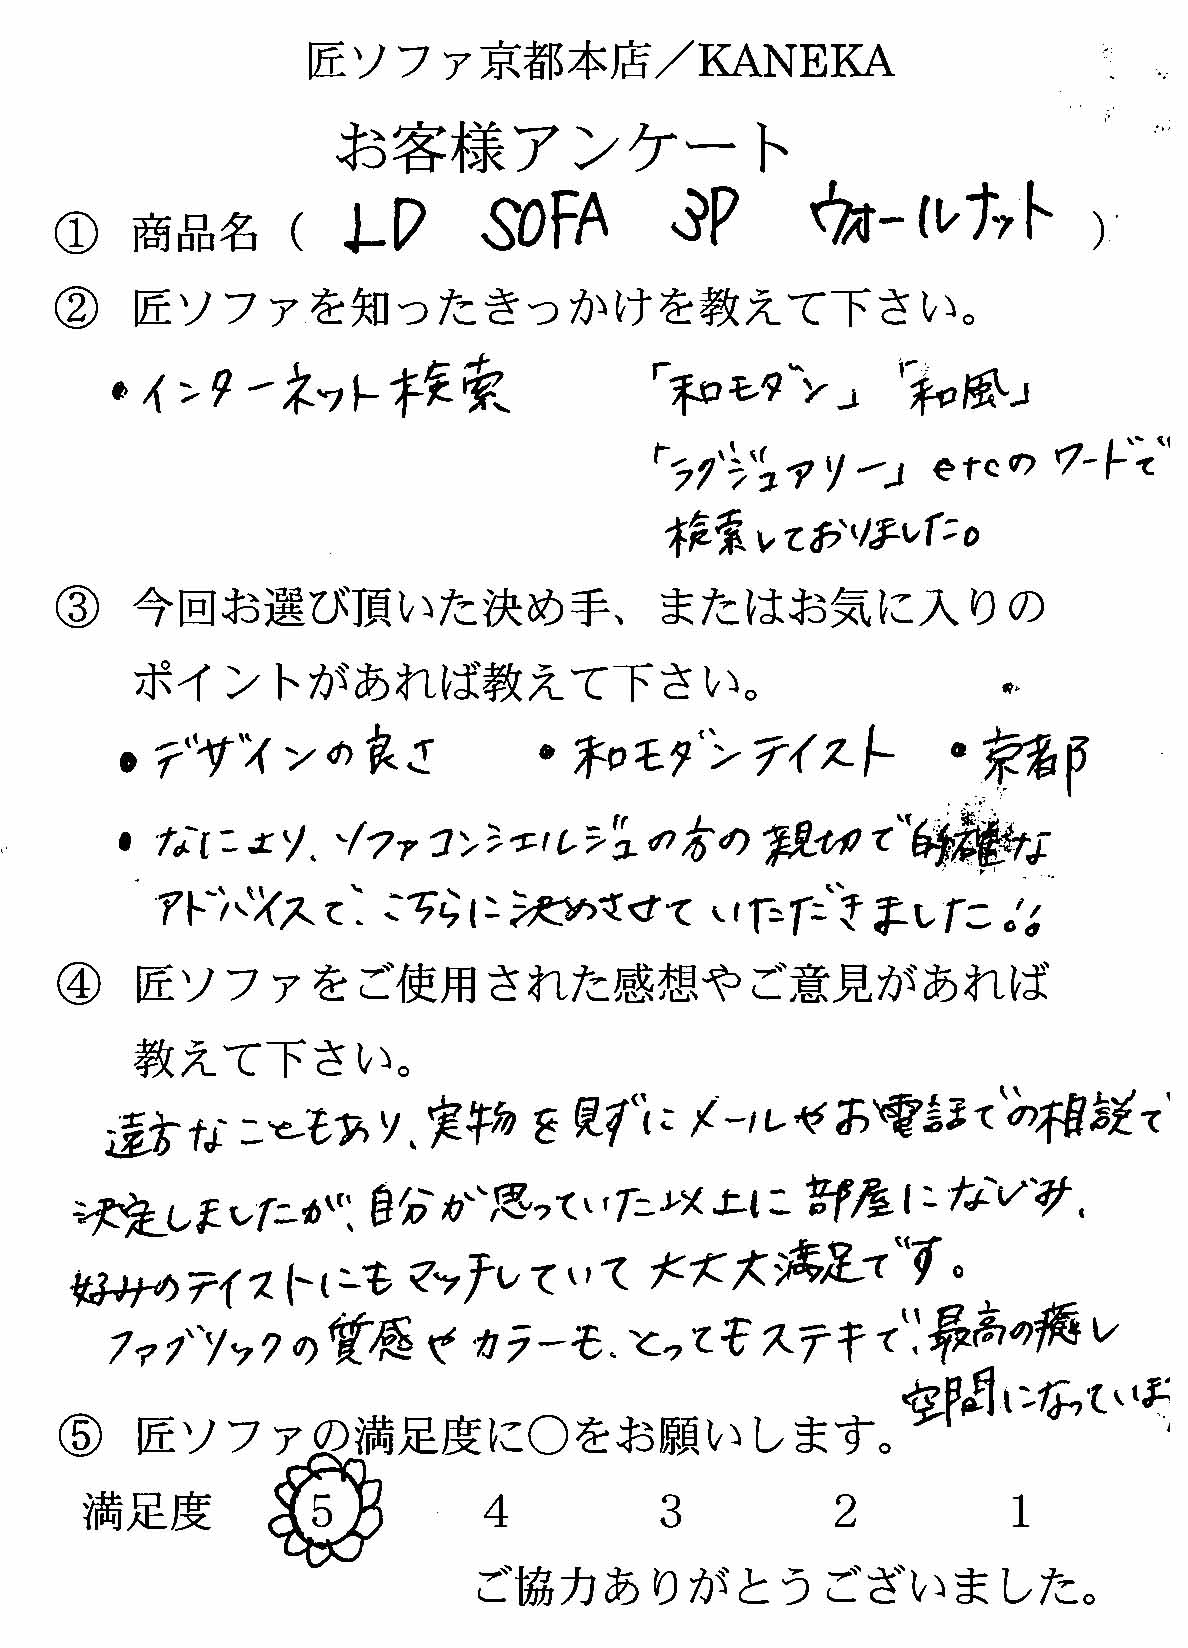 匠ソファ京都本店／KANEKA
お客様アンケート
① 商品名（ LD SOFA 3P ウォールナット ）
② 匠ソファを知ったきっかけを教えて下さい。
・インターネット検索 「和モダン」「和風」
「ラグジュアリー」etcのワードで
検索しておりました。
③ 今回お選び頂いた決め手、またはお気に入りの
ポイントがあれば教えて下さい。
・デザインの良さ ・和モダンテイスト ・京都
・なにより、ソファコンシェルジュの方の親切で的確な
アドバイスで、こちらに決めさせていただきました!!
④ 匠ソファをご使用された感想やご意見があれば
教えて下さい。
遠方なこともあり、実物を見ずにメールやお電話での相談で
決定しましたが、自分が思っていた以上に部屋になじみ、
好みのテイストにもマッチしていて大大大満足です。
ファブリックの質感やカラーも、とってもステキで、最高の癒し
空間になっていま
⑤ 匠ソファの満足度に○をお願いします。
満足度 5 4 3 2 1
ご協力ありがとうございました。